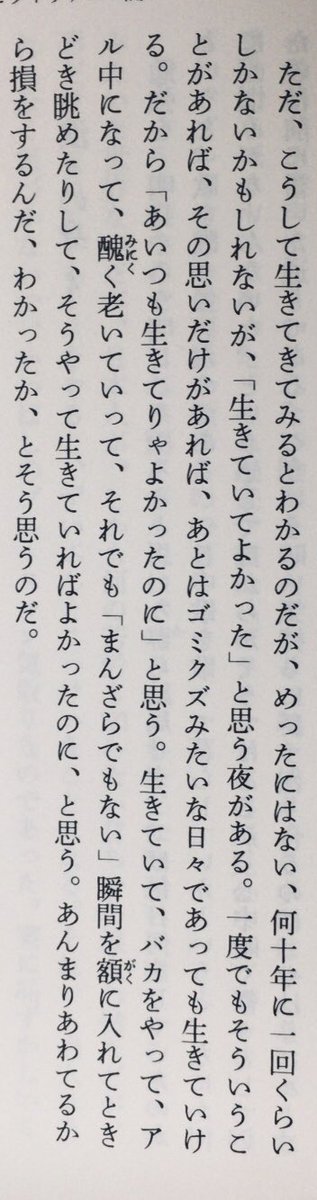 ただ、こうして生きてきてみるとわかるのだが、めったにはない、何十年に一回くらい
しかないかもしれないが、「生きていてよかった」と思う夜がある。一度でもそういうこ
とがあれば、その思いだけがあれば、あとはゴミクズみたいな日々であっても生きていけ
る。だから「あいつも生きてりゃよかったのに」と思う。生きていて、バカをやって、ア
ル中になって、醜く老いていって、それでも「まんざらでもない」瞬間を額に入れてとき
どき眺めたりして、そうやって生きていればよかったのに、と思う。あんまりあわてるか
ら損をするんだ、わかったか、とそう思うのだ。